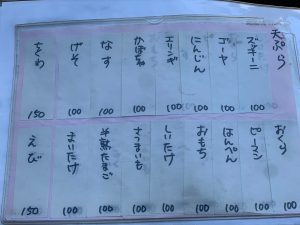 天ぷら
ズッキーニ 100
ゴーヤ 100
にんじん 100
エリンギ 100
かぼちゃ 100
なす 100
げそ 100
ちくわ 150
おくら 100
ピーマン 100
はんぺん 100
おもち 100
しいたけ 100
さつまいも 100
半熟たまご 100
まいたけ 100
えび 150